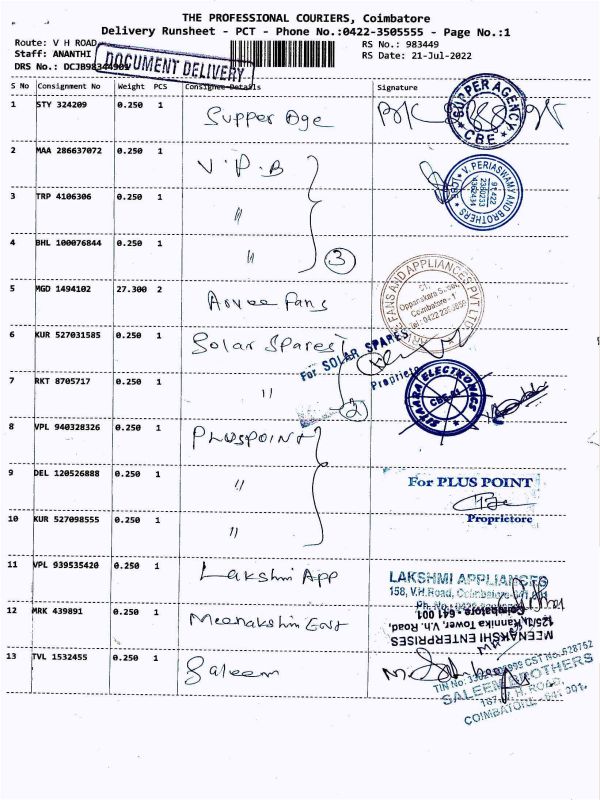 THE PROFESSIONAL COURIERS, Coimbatore
Delivery Runsheet - PCT - Phone No.:0422-3505555 - Page No.:1
Route: V H ROAD
RS No.: 983449
Staff: ANANTHI
RS Date: 21-Jul-2022
DRS No.: DCJB98344901
DOCUMENT DELIVERY
S No Consignment No Weight PCS Consignee Details Signature
1 STY 324209 0.250 1 Supper Age
SUPPER AGENCY
CBE
2 MAA 286637072 0.250 1 V.P.B
V. PERIASWAMY AND BROTHERS
CBE
3 TRP 4106306 0.250 1 "
4 BHL 100076844 0.250 1 "
3
5 MGD 1494102 27.300 2 Arvee Fans
FANS AND APPLIANCES PVT LTD
Oppanakara Street,
Coimbatore - 1
6 KUR 527031585 0.250 1 Solar Spares
For SOLAR SPARES
Proprietor
7 RKT 8705717 0.250 1 "
2
SITAARA ELECTRONICS
8 VPL 940328326 0.250 1 PLUSPOINT
9 DEL 120526888 0.250 1 "
For PLUS POINT
Proprietore
10 KUR 527098555 0.250 1 "
11 VPL 939535420 0.250 1 Lakshmi App
LAKSHMI APPLIANCES
158, V.H.Road, Coimbatore-641 001
12 MRK 439891 0.250 1 Meenakshi Ent
MEENAKSHI ENTERPRISES
Kannika Tower, V.h. Road,
Coimbatore - 641 001
13 TVL 1532455 0.250 1 Saleem
SALEEM BROTHERS
187, V. H. ROAD,
COIMBATORE - 641 001.